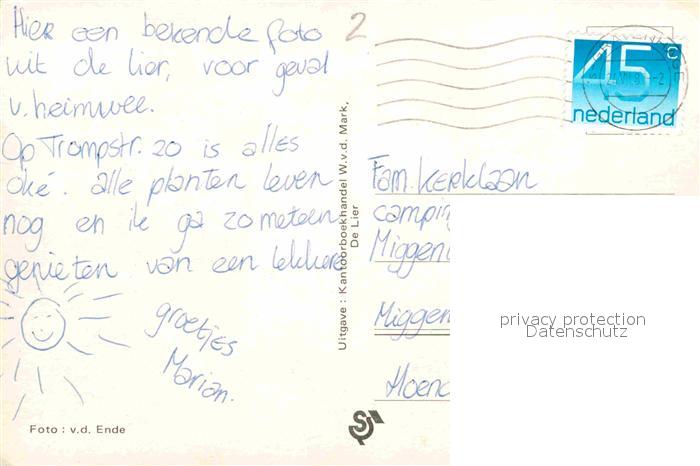 Hier een bekende foto
uit de lier, voor geval
v. heimwee.
Op Trompstr. 20 is alles
oké. alle planten leven
nog en ik ga zometeen
genieten van een lekkere
groetjes
Marian.
Foto : v.d. Ende
2
Uitgave : Kantoorboekhandel W.v.d. Mark,
De Lier
45 c
nederland
Fam. KERKLAAN
camping
Miggen
Miggen
Hoend
privacy protection
Datenschutz